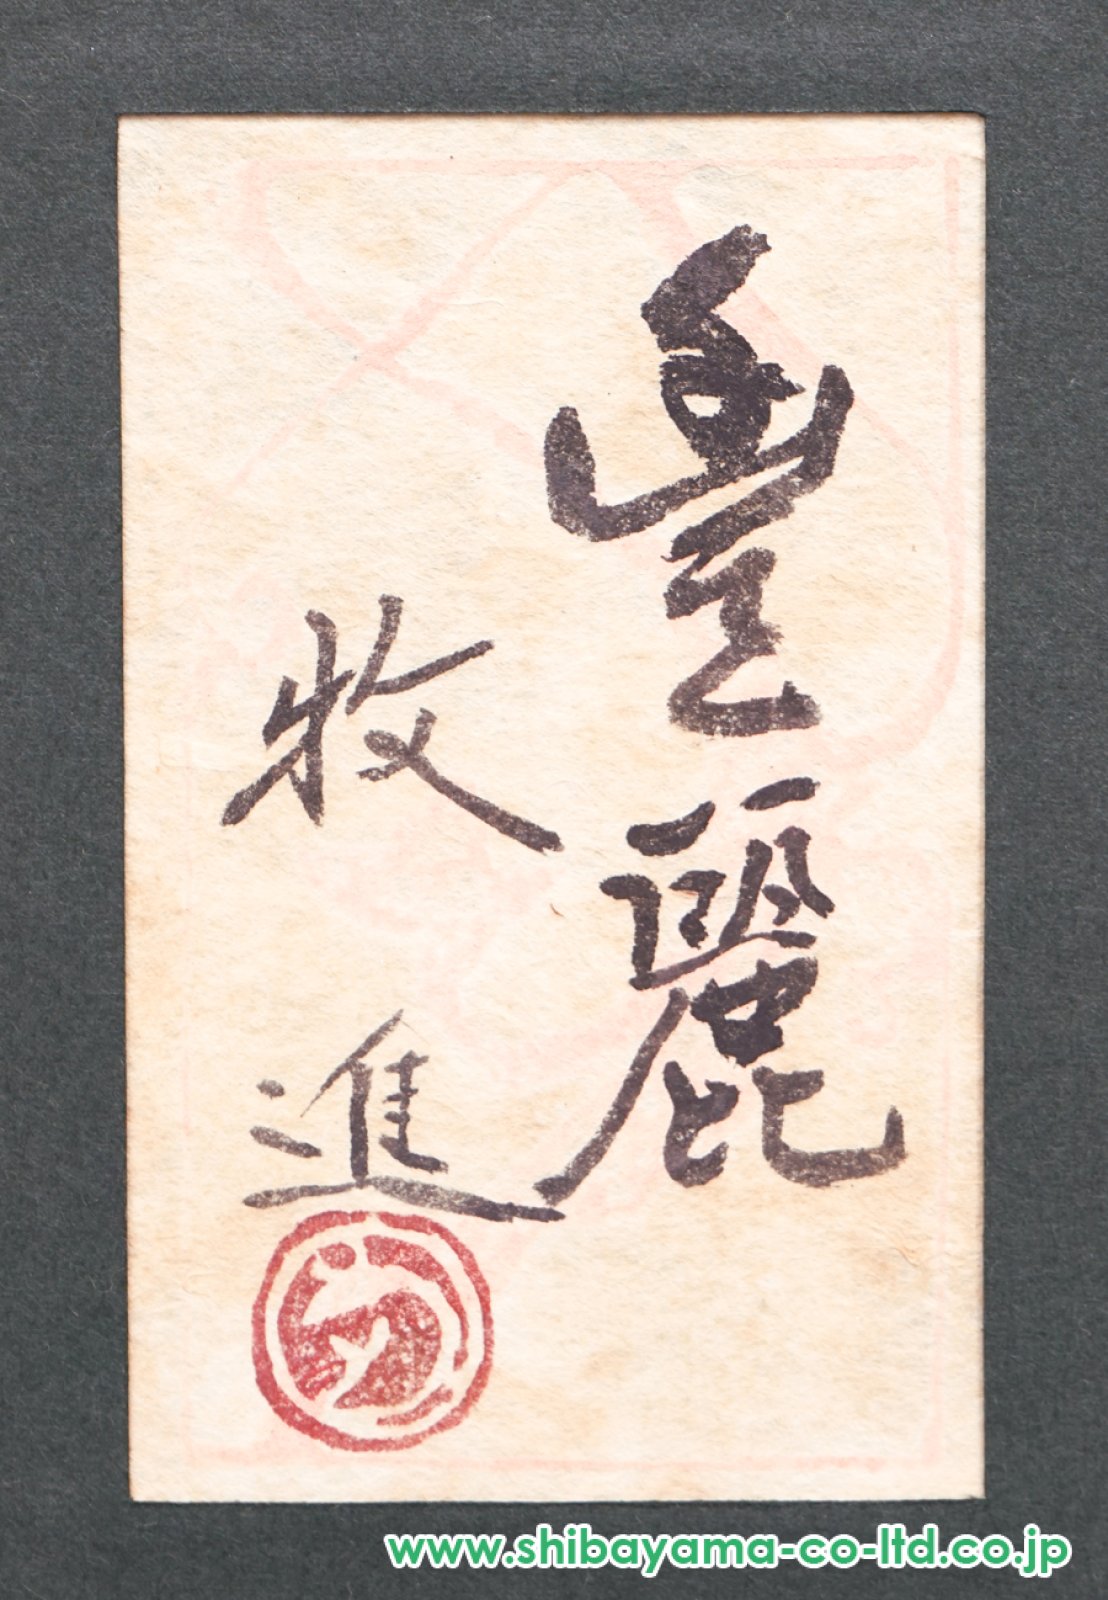 豊麗
牧進
www.shibayama-co-ltd.co.jp